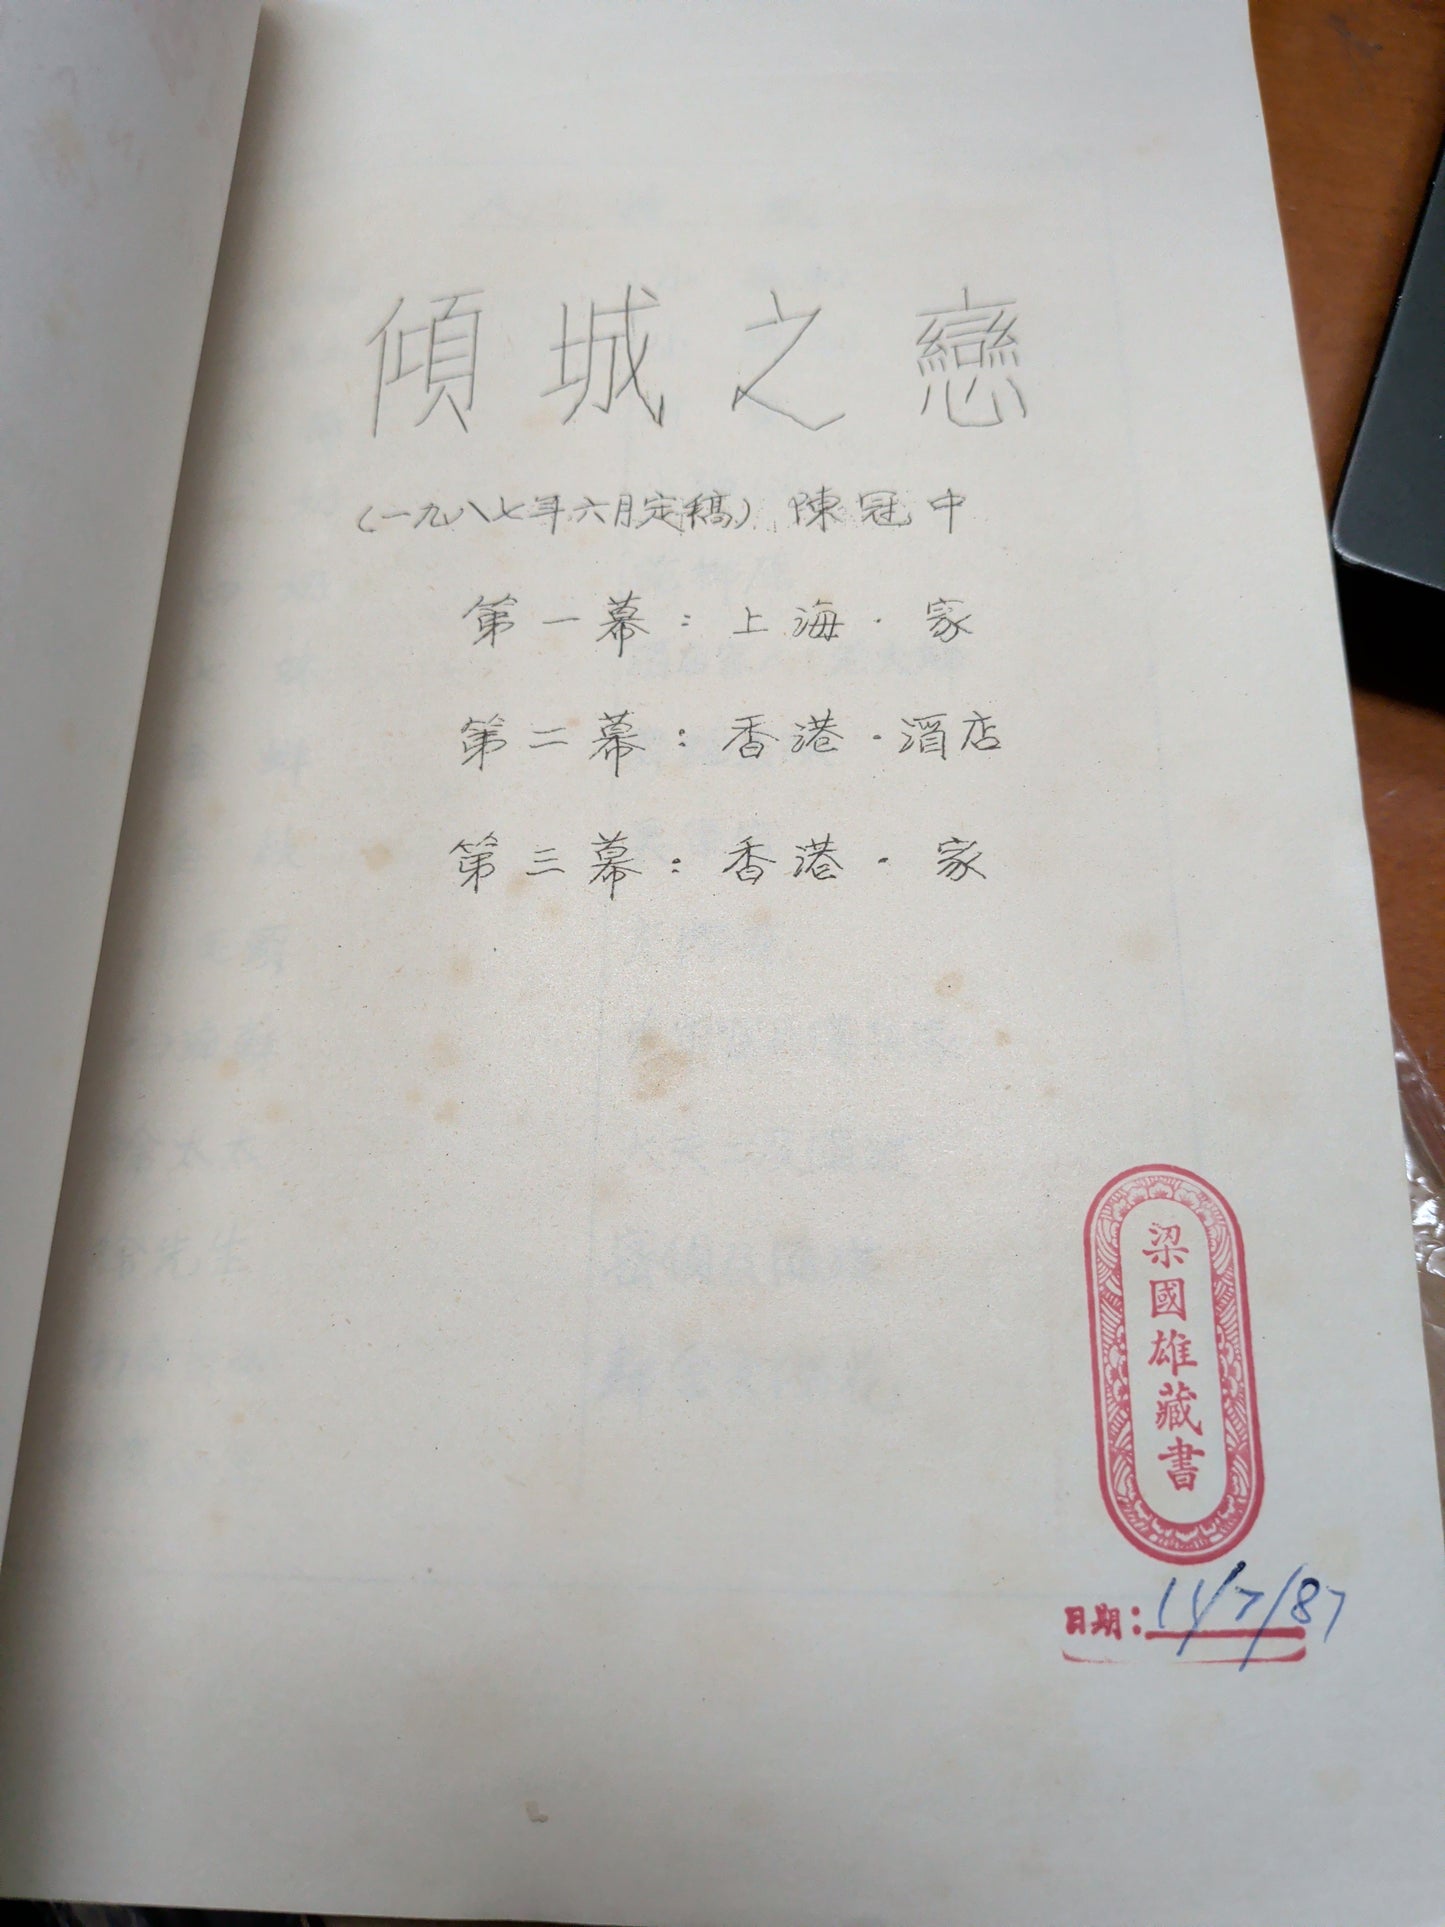 傾城之戀
（一九八七年六月定稿）陳冠中
第一幕：上海·家
第二幕：香港·酒店
第三幕：香港·家
梁國雄藏書
日期：11/7/87